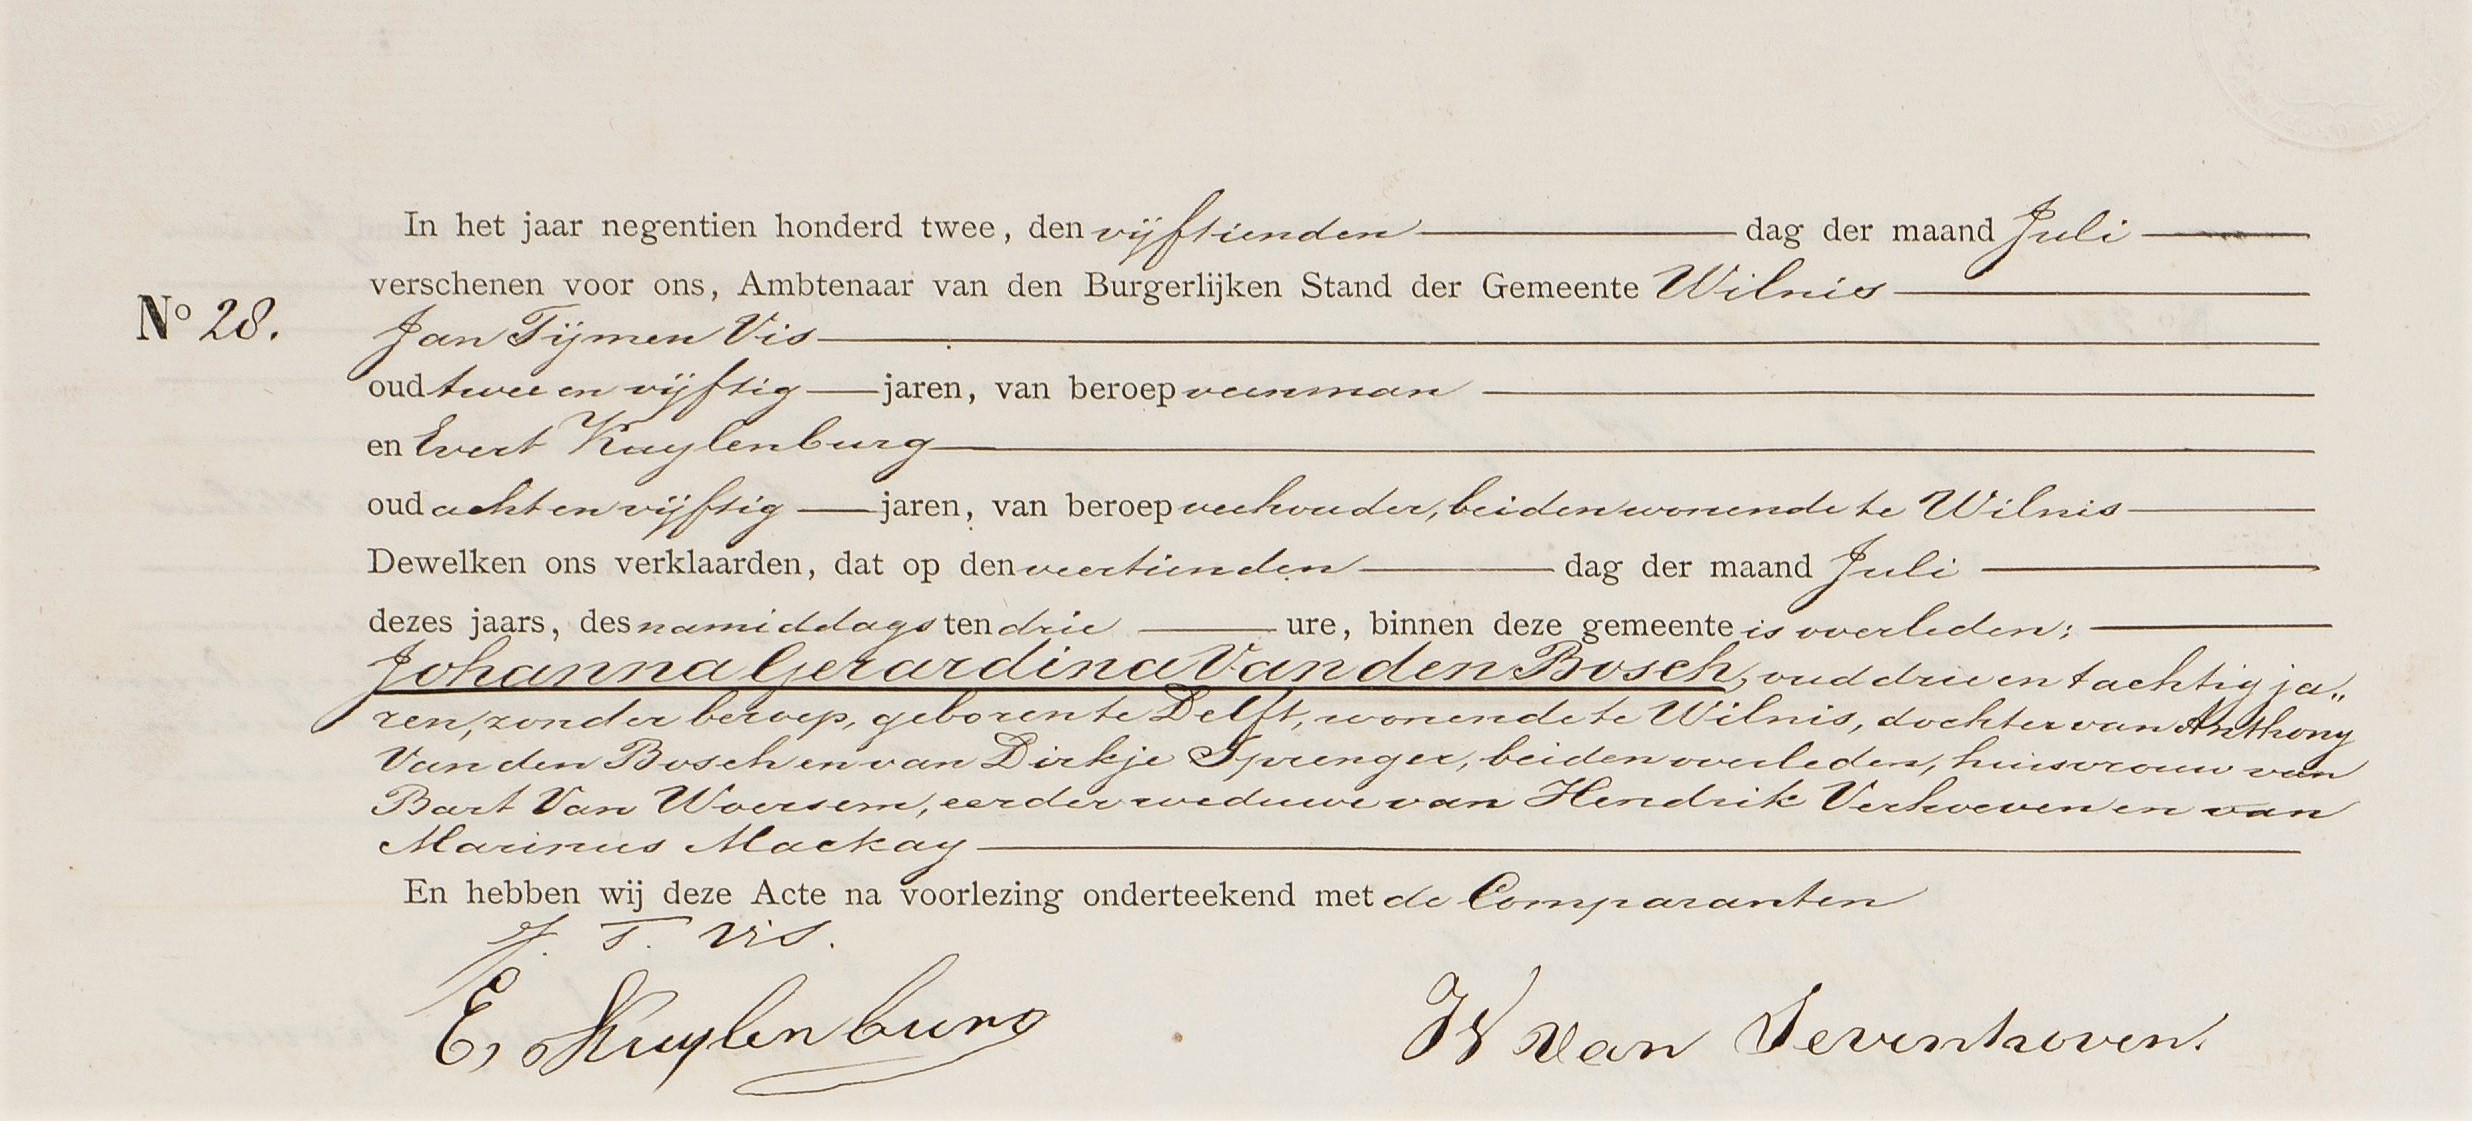 In het jaar negentien honderd twee, den vijftienden dag der maand Juli
verschenen voor ons, Ambtenaar van den Burgerlijken Stand der Gemeente Wilnis
No 28.
Jan Tijmen Vis
oud twee en vijftig jaren, van beroep veenman
en Evert Kuylenburg
oud acht en vijftig jaren, van beroep veehouder, beiden wonende te Wilnis
Dewelken ons verklaarden, dat op den veertienden dag der maand Juli
dezes jaars, des namiddags ten drie ure, binnen deze gemeente is overleden;
Johanna Gerardina Van den Bosch, oud drie en tachtig ja„
ren, zonder beroep, geboren te Delft, wonende te Wilnis, dochter van Anthony
Van den Bosch en van Dirkje Sprenger, beiden overleden, huisvrouw van
Bart Van Woersem, eerder weduwe van Hendrik Verhoeven en van
Marinus Mackay
En hebben wij deze Acte na voorlezing onderteekend met de Comparanten
J. T. Vis.
E, Kuylenburg
W van Sevenhoven.